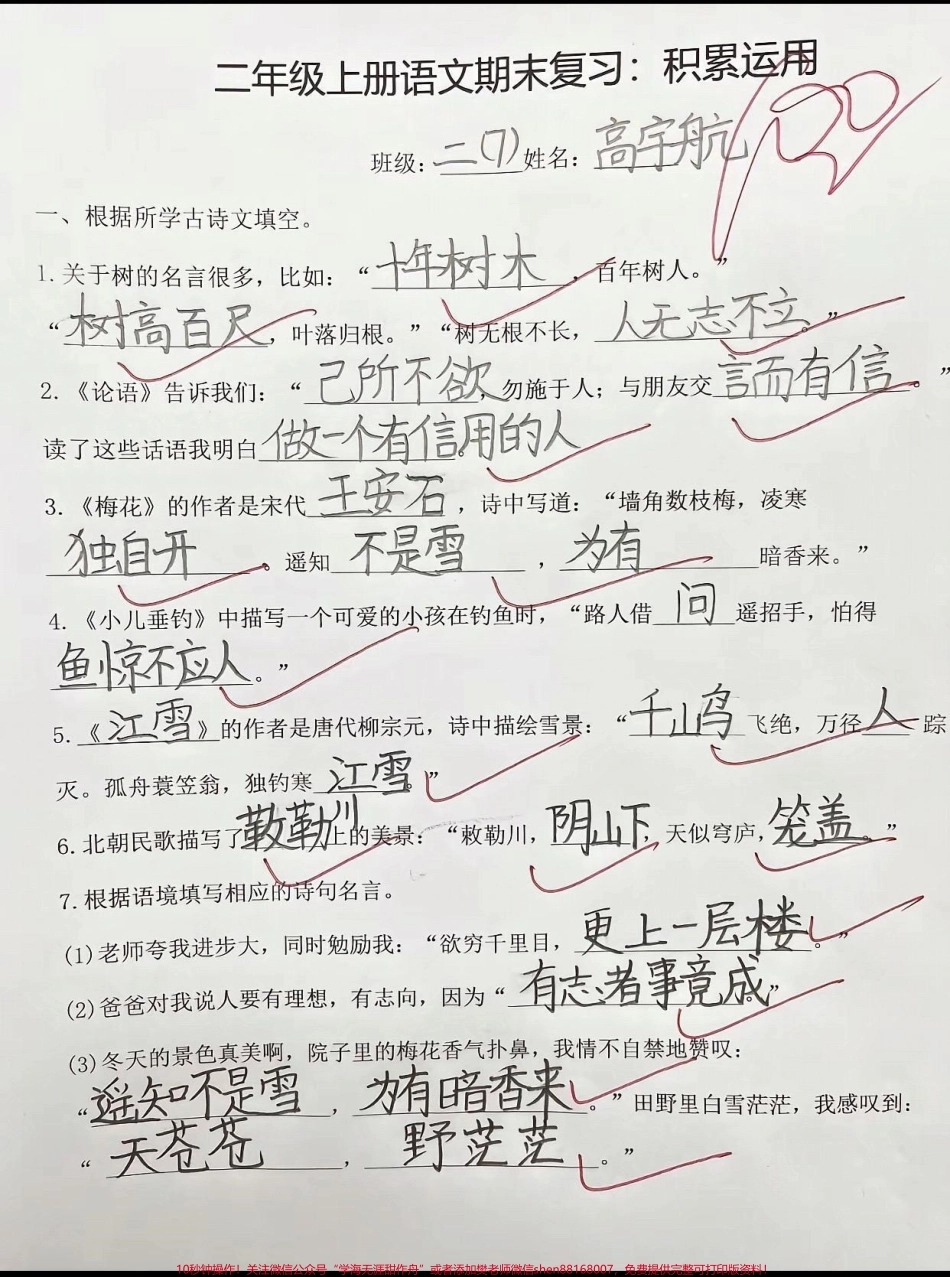 二年级上册语文期末复习：积累运用
班级：二(7) 姓名：高宇航
一、根据所学古诗文填空。
1.关于树的名言很多，比如：“十年树木，百年树人。”
“树高百尺，叶落归根。”“树无根不长，人无志不立。”
2.《论语》告诉我们：“己所不欲，勿施于人；与朋友交言而有信。”
读了这些话语我明白做一个有信用的人。
3.《梅花》的作者是宋代王安石，诗中写道：“墙角数枝梅，凌寒
独自开。遥知不是雪，为有暗香来。”
4.《小儿垂钓》中描写一个可爱的小孩在钓鱼时，“路人借问遥招手，怕得
鱼惊不应人。”
5.《江雪》的作者是唐代柳宗元，诗中描绘雪景：“千山鸟飞绝，万径人踪
灭。孤舟蓑笠翁，独钓寒江雪。”
6.北朝民歌描写了敕勒川上的美景：“敕勒川，阴山下，天似穹庐，笼盖。”
7.根据语境填写相应的诗句名言。
(1)老师夸我进步大，同时勉励我：“欲穷千里目，更上一层楼。”
(2)爸爸对我说人要有理想，有志向，因为“有志者事竟成。”
(3)冬天的景色真美啊，院子里的梅花香气扑鼻，我情不自禁地赞叹：
“遥知不是雪，为有暗香来。”田野里白雪茫茫，我感叹到：
“天苍苍，野茫茫。”
10秒钟操作！关注微信公众号“学海无涯甜作舟”或者添加樊老师微信shen88168007，免费提供完整可打印版资料！